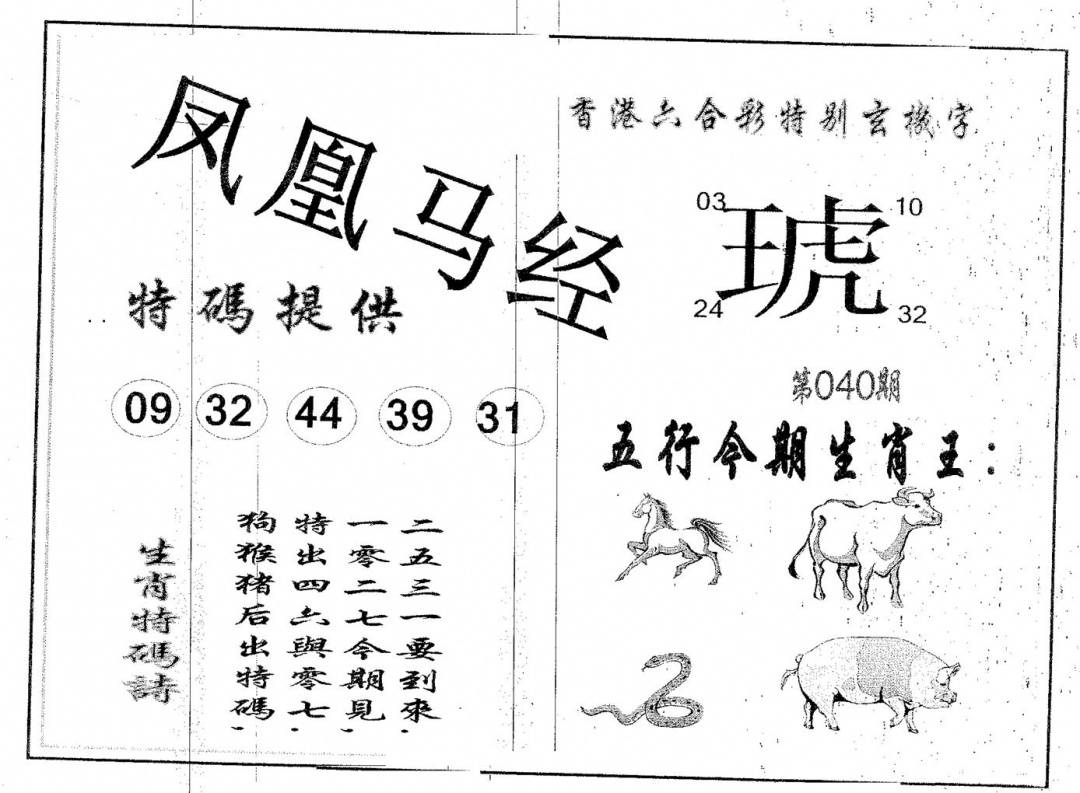 凤凰马经
特碼提供
09 32 44 39 31
生肖特碼詩
二五三一要到來.
一零二七今期見.
特出四六與零七.
狗猴猪后出特碼.
香港六合彩特别玄機字
03 10
琥
24 32
第040期
五行今期生肖王：